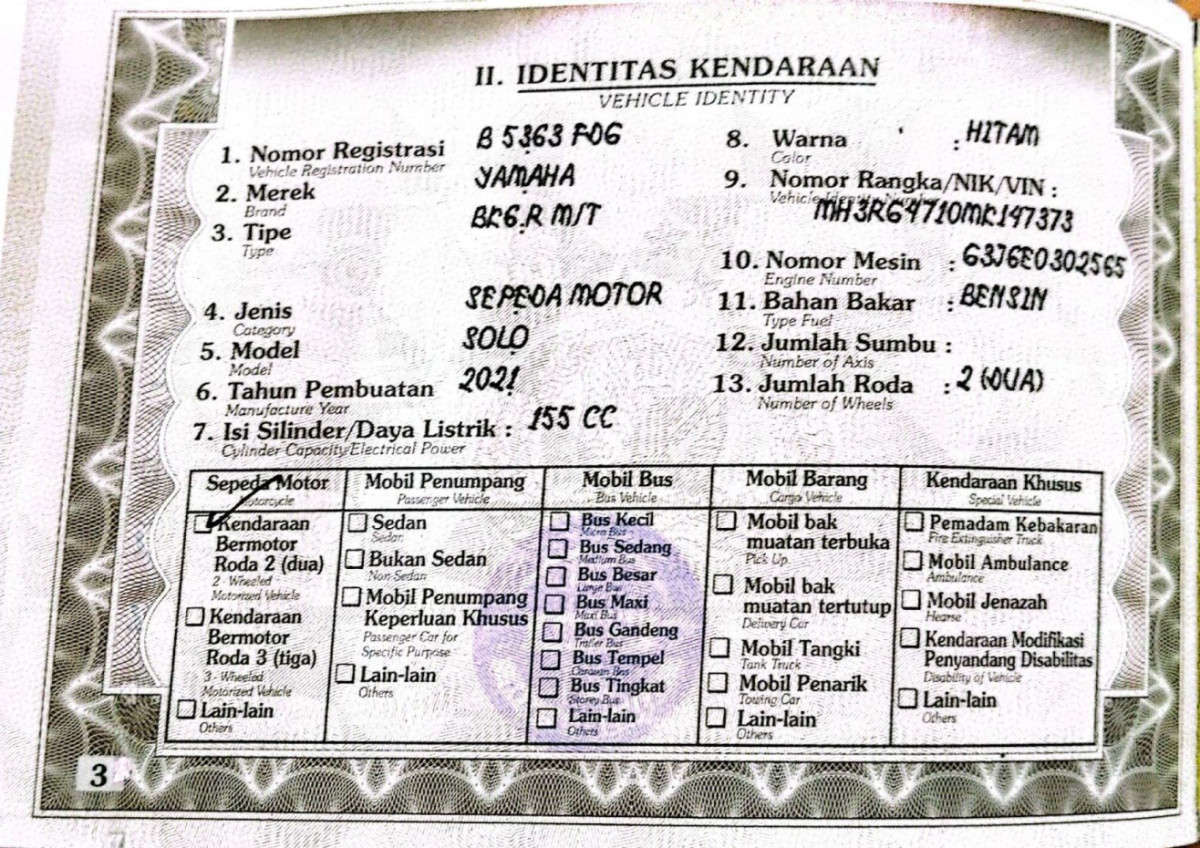 II. IDENTITAS KENDARAAN
VEHICLE IDENTITY
1. Nomor Registrasi B 5363 FOG
Vehicle Registration Number
2. Merek YAMAHA
Brand
3. Tipe BK6.R M/T
Type
4. Jenis SEPEDA MOTOR
Category
5. Model SOLO
Model
6. Tahun Pembuatan 2021
Manufacture Year
7. Isi Silinder/Daya Listrik : 155 CC
Cylinder Capacity/Electrical Power
8. Warna : HITAM
Color
9. Nomor Rangka/NIK/VIN :
Vehicle Identity Number
MH3RG4710MK147373
10. Nomor Mesin : G3J6E0302565
Engine Number
11. Bahan Bakar : BENSIN
Type Fuel
12. Jumlah Sumbu :
Number of Axis
13. Jumlah Roda : 2 (DUA)
Number of Wheels
Sepeda Motor
Motorcycle
Kendaraan
Bermotor
Roda 2 (dua)
2 - Wheeled
Motorized Vehicle
Kendaraan
Bermotor
Roda 3 (tiga)
3 - Wheeled
Motorized Vehicle
Lain-lain
Others
Mobil Penumpang
Passenger Vehicle
Sedan
Sedan
Bukan Sedan
Non-Sedan
Mobil Penumpang
Keperluan Khusus
Passenger Car for
Specific Purpose
Lain-lain
Others
Mobil Bus
Bus Vehicle
Bus Kecil
Micro Bus
Bus Sedang
Medium Bus
Bus Besar
Large Bus
Bus Maxi
Maxi Bus
Bus Gandeng
Trailer Bus
Bus Tempel
Caravan Bus
Bus Tingkat
Storey Bus
Lain-lain
Others
Mobil Barang
Cargo Vehicle
Mobil bak
muatan terbuka
Pick Up
Mobil bak
muatan tertutup
Delivery Car
Mobil Tangki
Tank Truck
Mobil Penarik
Towing Car
Lain-lain
Others
Kendaraan Khusus
Special Vehicle
Pemadam Kebakaran
Fire Extinguisher Truck
Mobil Ambulance
Ambulance
Mobil Jenazah
Hearse
Kendaraan Modifikasi
Penyandang Disabilitas
Disability of Vehicle
Lain-lain
Others
3